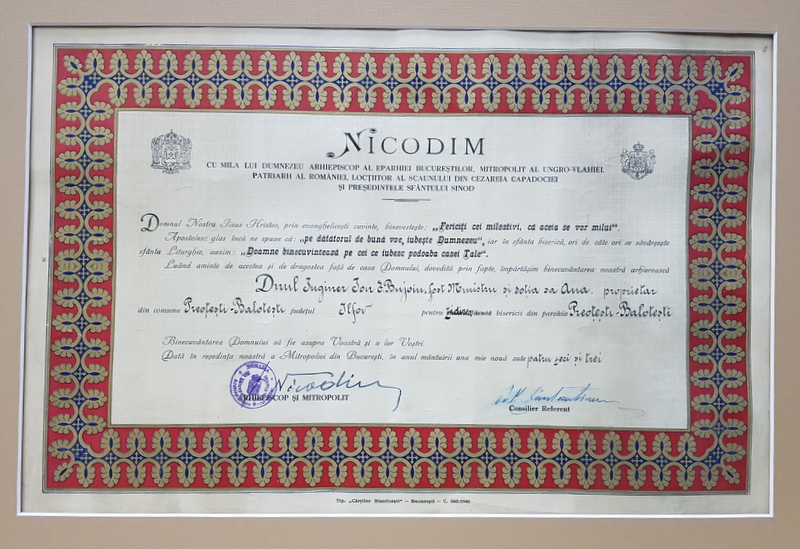 NICODIM
CU MILA LUI DUMNEZEU ARHIEPISCOP AL EPARHIEI BUCUREȘTILOR, MITROPOLIT AL UNGRO-VLAHIEI,
PATRIARH AL ROMÂNIEI, LOCȚIITOR AL SCAUNULUI DIN CEZAREIA CAPADOCIEI
ȘI PREȘEDINTELE SFÂNTULUI SINOD
Domnul Nostru Iisus Hristos, prin evanghelicești cuvinte, binevestește: „Fericiți cei milostivi, că aceia se vor milui".
Apostolesc glas încă ne spune că: „pe dătătorul de bună voe, iubește Dumnezeu", iar în sfânta biserică, ori de câte ori se săvârșește
sfânta Liturghie, auzim: „Doamne binecuvintează pe cei ce iubesc podoaba casei Tale".
Luând aminte de acestea și de dragostea față de casa Domnului, dovedită prin fapte, împărtășim binecuvântarea noastră arhierească
Dnul Inginer Ion Bujoiu, fost Ministru și soția sa Ana. proprietar
din comuna Preoțești-Balotești județul Ilfov pentru bisericii din parohia Preoțești-Balotești
Binecuvântarea Domnului să fie asupra Voastră și a lor Voștri.
Dată în reședința noastră a Mitropoliei din București, în anul mântuirii una mie nouă sute patru zeci și trei
Nicodim
ARHIEPISCOP ȘI MITROPOLIT
Consilier Referent
Tip. „Cărților Bisericești" — București — C.